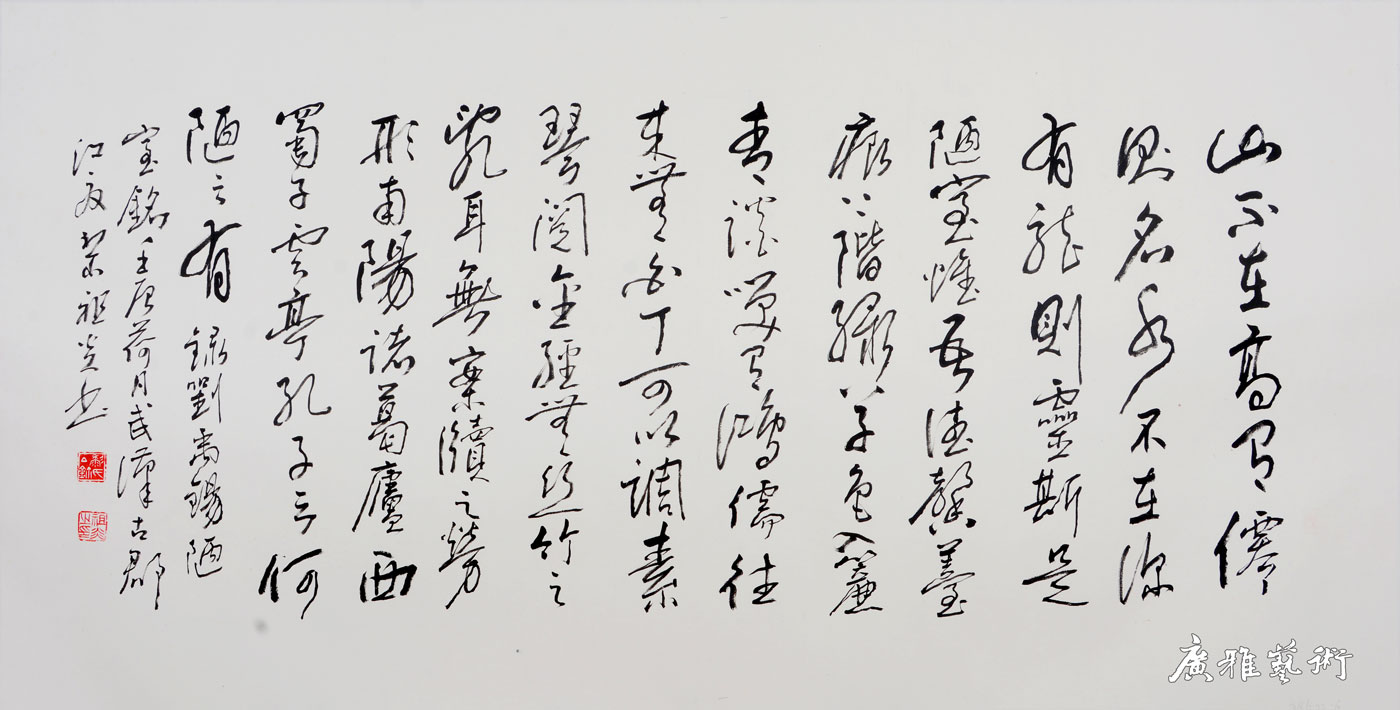 山不在高有僊
則名水不在深
有龍則靈斯是
陋室惟吾德馨薹
痕上階綠草色入簾
青談笑有鴻儒往
來無白丁可以調素
琴閱金經無絲竹之
亂耳無案牘之勞
形南陽諸葛廬西
蜀子雲亭孔子云何
陋之有 錄劉禹錫陋
室銘壬辰荷月武漢古郡
江夏黎祖炎書
廣雅藝術